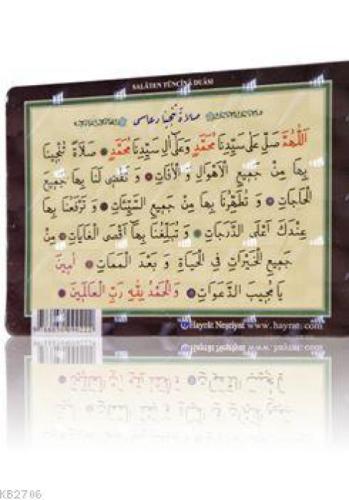 SALÂTEN TÜNCÎNÂ DUÂSI
صلاة تنجينا دعاسى
اَللّٰهُمَّ صَلِّ عَلٰى سَيِّدِنَا مُحَمَّدٍ وَعَلٰى اٰلِ سَيِّدِنَا مُحَمَّدٍ صَلَاةً تُنْجِينَا
بِهَا مِنْ جَمِيعِ الْاَهْوَالِ وَ الْاٰفَاتِ وَ تَقْضِى لَنَا بِهَا جَمِيعَ
الْحَاجَاتِ وَ تُطَهِّرُنَا بِهَا مِنْ جَمِيعِ السَّيِّئَاتِ وَ تَرْفَعُنَا بِهَا
عِنْدَكَ اَعْلَى الدَّرَجَاتِ وَ تُبَلِّغُنَا بِهَا اَقْصَى الْغَايَاتِ مِنْ
جَمِيعِ الْخَيْرَاتِ فِى الْحَيَاةِ وَ بَعْدَ الْمَمَاتِ اٰمِينَ
يَا مُجِيبَ الدَّعَوَاتِ وَ الْحَمْدُ لِلّٰهِ رَبِّ الْعَالَمِينَ
Hayrât Neşriyat www.hayrat.com
KB2706